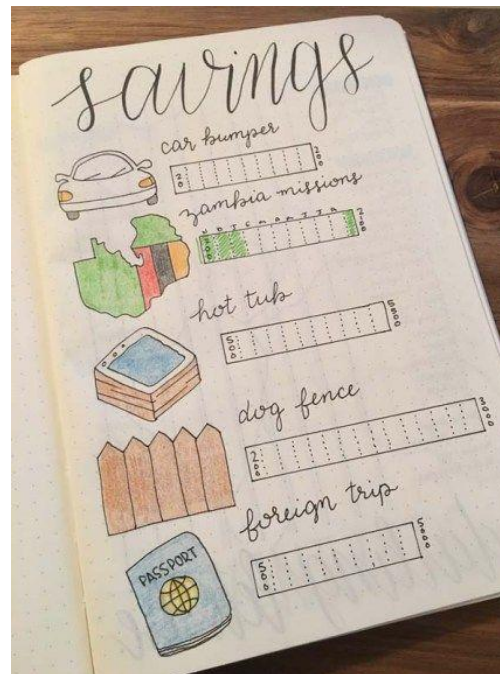 savings
car bumper
20 200
zambia missions
hot tub
500 5000
dog fence
200 3000
foreign trip
500 5000
PASSPORT